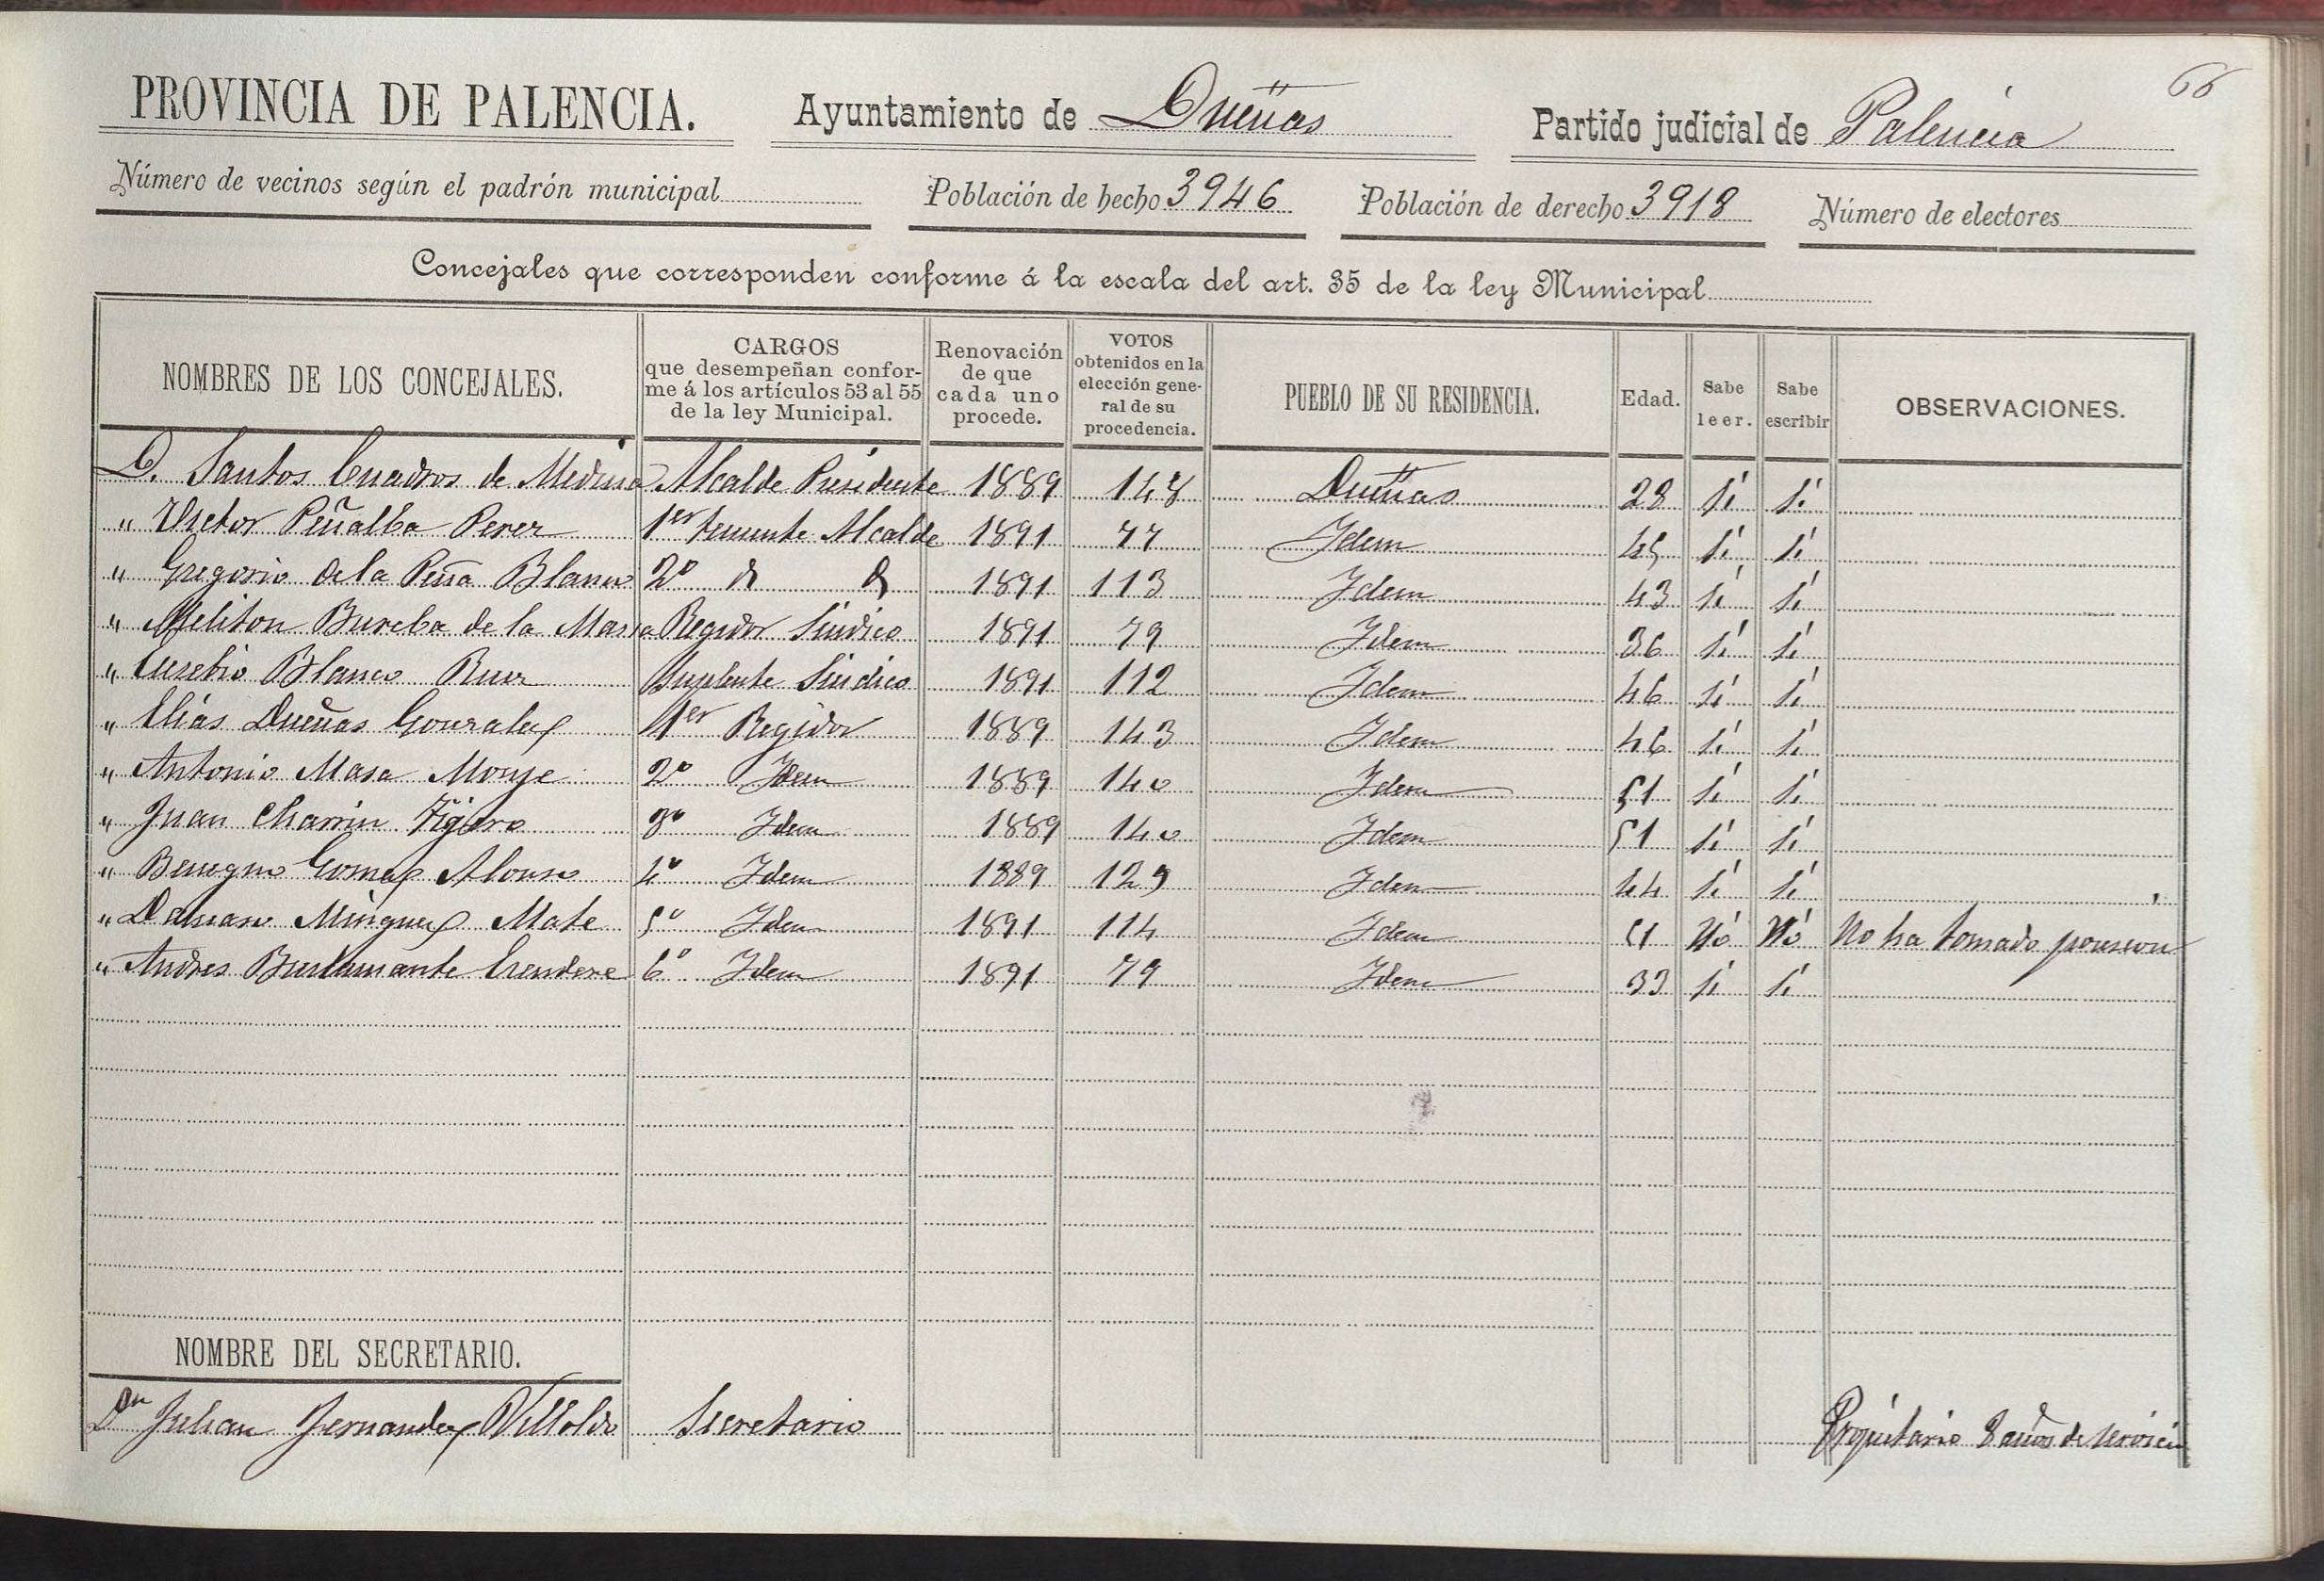 66
PROVINCIA DE PALENCIA. Ayuntamiento de Dueñas Partido judicial de Palencia
Número de vecinos según el padrón municipal Población de hecho 3946 Población de derecho 3918 Número de electores
Concejales que corresponden conforme á la escala del art. 35 de la ley Municipal
NOMBRES DE LOS CONCEJALES. CARGOS que desempeñan conforme á los artículos 53 al 55 de la ley Municipal. Renovación de que cada uno procede. VOTOS obtenidos en la elección general de su procedencia. PUEBLO DE SU RESIDENCIA. Edad. Sabe leer. Sabe escribir OBSERVACIONES.
D. Santos Cuadros de Medina Alcalde Presidente 1889 148 Dueñas 28 si si
" Victor Peñalba Perez 1er teniente Alcalde 1891 77 Idem 45 si si
" Gregorio de la Peña Blanco 2º 1891 113 Idem 43 si si
" Meliton Bureba de la Masa Regidor Sindico 1891 79 Idem 36 si si
" Eusebio Blanco Ruiz Suplente Sindico 1891 112 Idem 46 si si
" Elias Dueñas Gonzalez 1er Regidor 1889 143 Idem 46 si si
" Antonio Masa Monge 2º Idem 1889 140 Idem 51 si si
" Juan Charrin 3º Idem 1889 140 Idem 51 si si
" Benigno Gomez Alonso 4º Idem 1889 129 Idem 44 si si
" Damaso Minguez Mate 5º Idem 1891 114 Idem 51 Nó Nó No ha tomado posesion
" Andres Bustamante 6º Idem 1891 79 Idem 33 si si
NOMBRE DEL SECRETARIO.
Dn Julian Fernandez Villoldo Secretario Propietario 8 años de servicio